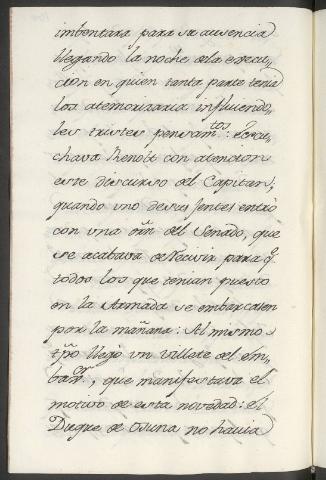 imbontara para su ausencia
llegando la noche de la execu-
cion en quien tanta parte tenia
los atemorizaria influiendo-
les tristes pensam.tos: Escu-
chava Renolt con atencion
este discurso del Capitan;
quando uno de sus Jentes entrò
con una orñ del Senado, que
se acabava de recivir para q.
todos los que tenian puesto
en la Armada se embarcasen
por la mañana: Al mismo
tpõ llegò un villete del Em-
bax.or, que manifestava el
motivo de esta novedad: el
Duque de Osuna no havia